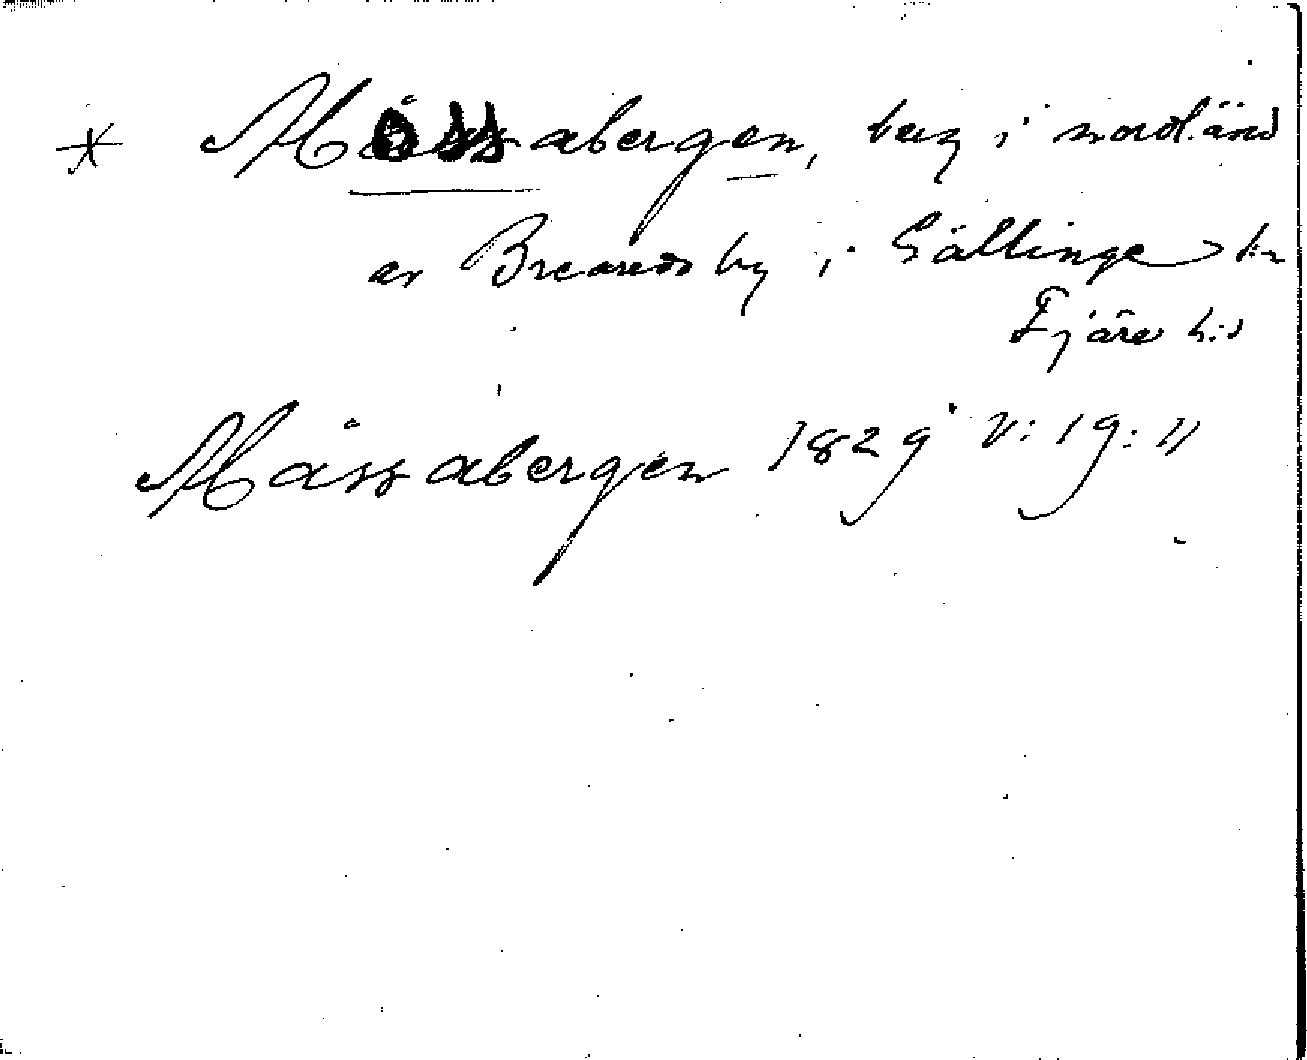 * Måssabergen, berg i nordl. änd
av Breareds by i Gällinge sn
Fjäre hd
Måssabergen 1829 V: 19: 11